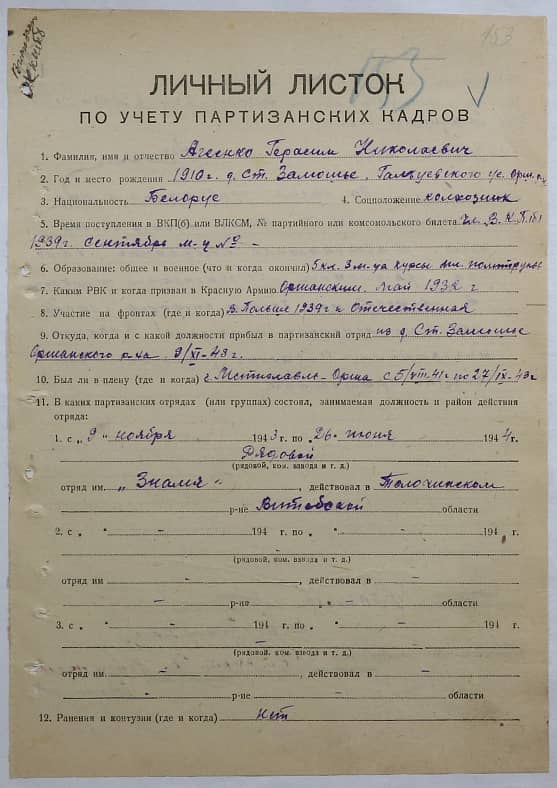 153
153
ЛИЧНЫЙ ЛИСТОК
ПО УЧЕТУ ПАРТИЗАНСКИХ КАДРОВ
1. Фамилия, имя и отчество Агеенко Герасим Николаевич
2. Год и место рождения 1910 г. д. Ст. Замошье, Галуевского с.
3. Национальность Белорус 4. Соцположение колхозник
5. Время поступления в ВКП(б) или ВЛКСМ, № партийного или комсомольского билета чл. В.К.П(б)
1939 г. сентябрь м-ц № -
6. Образование: общее и военное (что и когда окончил) 5 кл. 3 м-ца курсы мл. политруков
7. Каким РВК и когда призван в Красную Армию Оршанским, май 1932 г
8. Участие на фронтах (где и когда) в Польше 1939 г и Отечественная
9. Откуда, когда и с какой должности прибыл в партизанский отряд из д. Ст. Замошье
Оршанского р-на 9/XI-43 г.
10. Был ли в плену (где и когда) г. Мстиславль-Орша с 5/VIII-41 г по 27/IX-43 г
11. В каких партизанских отрядах (или группах) состоял, занимаемая должность и район действия
отряда:
1. с „ 9 " ноября 1943 г. по „ 26 " июня 1944 г.
Рядовой
(рядовой, ком. взвода и т. д.)
отряд им. „Знамя" , действовал в Толочинском
р-не Витебской области
2. с „ " - 194 г. по „ " - 194 г.
-
(рядовой, ком. взвода и т. д.)
отряд им - , действовал в -
- р-не - области
3. с „ " - 194 г. по „ " - 194 г.
-
(рядовой, ком. взвода и т. д.)
отряд им - , действовал в -
- р-не - области
12. Ранения и контузии (где и когда) нет